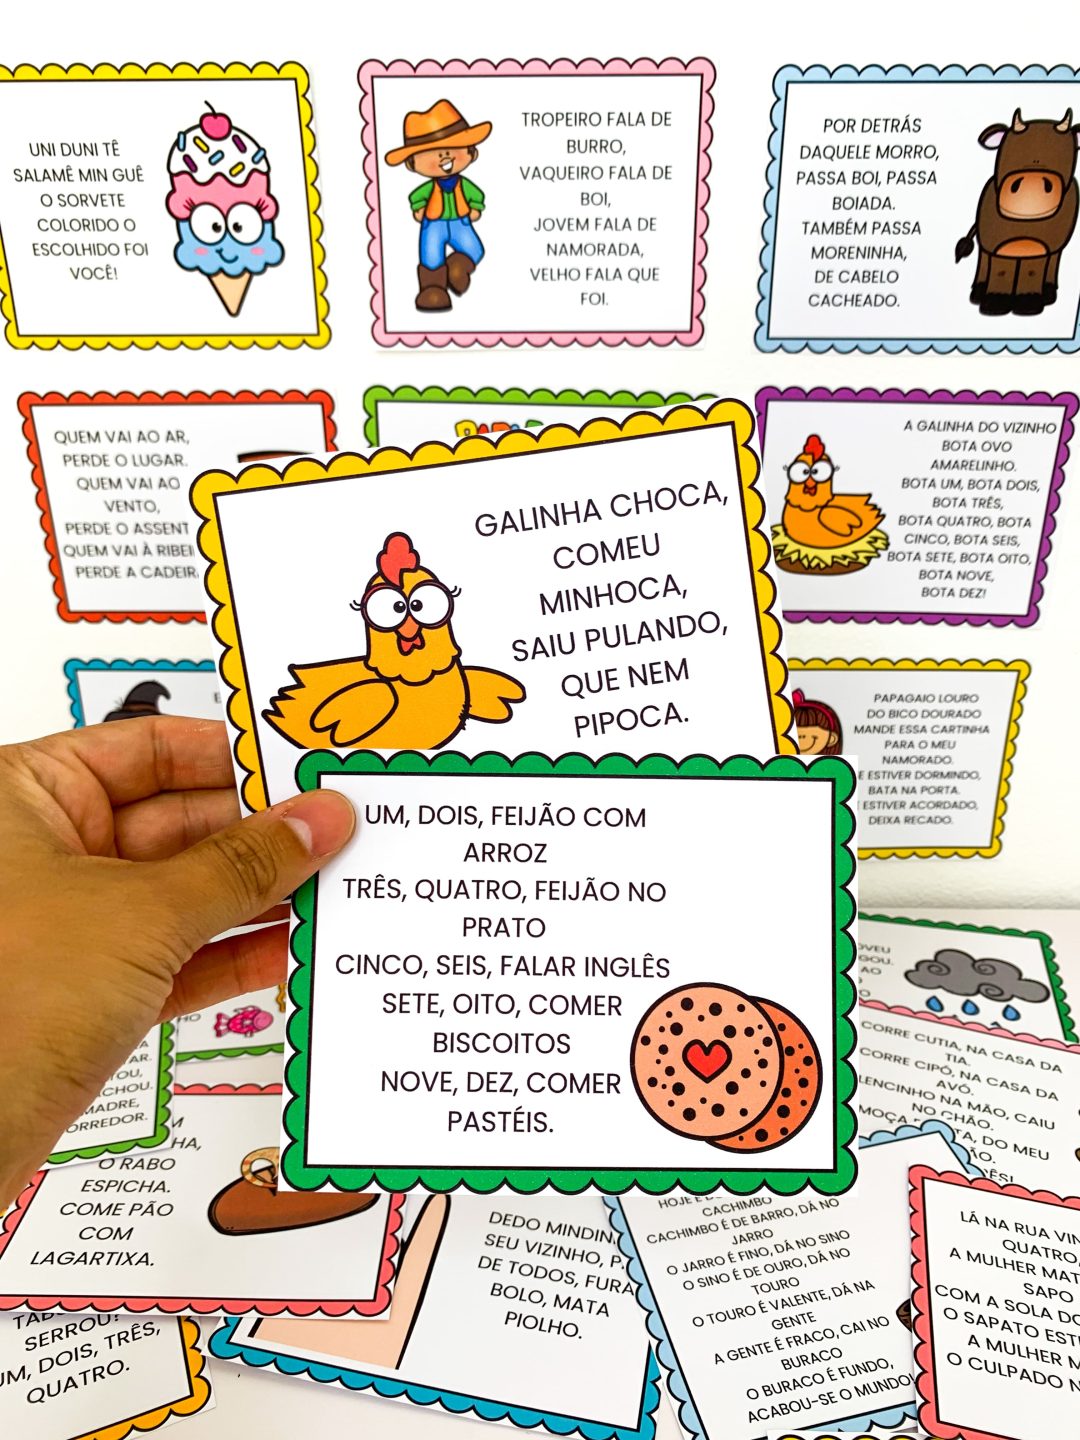 UNI DUNI TÊ
SALAMÊ MIN GUÊ
O SORVETE
COLORIDO O
ESCOLHIDO FOI
VOCÊ!
TROPEIRO FALA DE
BURRO,
VAQUEIRO FALA DE
BOI,
JOVEM FALA DE
NAMORADA,
VELHO FALA QUE
FOI.
POR DETRÁS
DAQUELE MORRO,
PASSA BOI, PASSA
BOIADA.
TAMBÉM PASSA
MORENINHA,
DE CABELO
CACHEADO.
QUEM VAI AO AR,
PERDE O LUGAR.
QUEM VAI AO
VENTO,
PERDE O ASSENT
QUEM VAI À RIBEI
PERDE A CADEIR
A GALINHA DO VIZINHO
BOTA OVO
AMARELINHO.
BOTA UM, BOTA DOIS,
BOTA TRÊS,
BOTA QUATRO, BOTA
CINCO, BOTA SEIS,
BOTA SETE, BOTA OITO,
BOTA NOVE,
BOTA DEZ!
GALINHA CHOCA,
COMEU
MINHOCA,
SAIU PULANDO,
QUE NEM
PIPOCA.
PAPAGAIO LOURO
DO BICO DOURADO
MANDE ESSA CARTINHA
PARA O MEU
NAMORADO.
E ESTIVER DORMINDO,
BATA NA PORTA.
ESTIVER ACORDADO,
DEIXA RECADO.
UM, DOIS, FEIJÃO COM
ARROZ
TRÊS, QUATRO, FEIJÃO NO
PRATO
CINCO, SEIS, FALAR INGLÊS
SETE, OITO, COMER
BISCOITOS
NOVE, DEZ, COMER
PASTÉIS.
OVEU
GOU.
AO
CORRE CUTIA, NA CASA DA
TIA.
CORRE CIPÓ, NA CASA DA
AVÓ.
LENCINHO NA MÃO, CAIU
NO CHÃO.
MOÇA TA, DO MEU
ÃO.
HO
TAR.
TOU,
ACHOU.
MADRE,
ORREDOR.
HA,
O RABO
ESPICHA.
COME PÃO
COM
LAGARTIXA.
SERROU?
UM, DOIS, TRÊS,
QUATRO.
DEDO MINDIN
SEU VIZINHO, P
DE TODOS, FURA
BOLO, MATA
PIOLHO.
HOJE É D
CACHIMBO
CACHIMBO É DE BARRO, DÁ NO
JARRO
O JARRO É FINO, DÁ NO SINO
O SINO É DE OURO, DÁ NO
TOURO
O TOURO É VALENTE, DÁ NA
GENTE
A GENTE É FRACO, CAI NO
BURACO
O BURACO É FUNDO,
ACABOU-SE O MUNDO
LÁ NA RUA VIN
QUATRO,
A MULHER MAT
SAPO
COM A SOLA DO
O SAPATO EST
A MULHER M
O CULPADO N